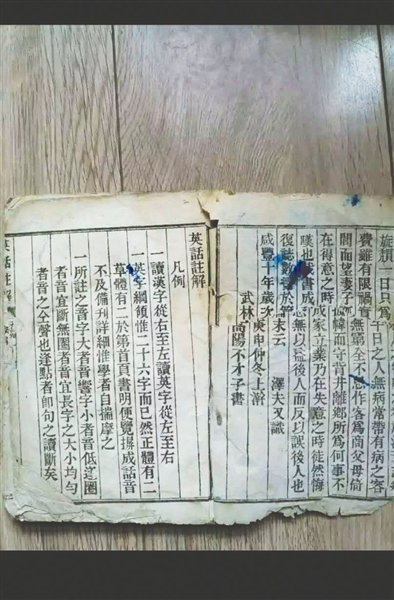 旋頭一日只爲千日之人無病常帶有病之容
費雖有限禍實無窮全不念作客爲商父母倚
閭而望妻子倚幃而守背井離鄉所爲何事不
在得意之時成家立業乃在失意之時徒然悔
嘆也哉書成無以益後人而反以誤後人也
復誌數於末云 澤夫又識
咸豐十年歲次庚申仲冬上澣
武林高陽不才子書
英話註解
凡例
一讀漢字從右至左讀英字從左至右
一英字綱領惟二十六字而已然正體有二
草體有二於第首頁書明便覽揖成話音
不及備刊詳細惟學者自揣摩之
一所註之音字大者音響字小者音低逕圈
者音宜斷無圈者音宜長字之大小均勻
者音之全聲也逢點者卽句之讀斷矣
英話註解